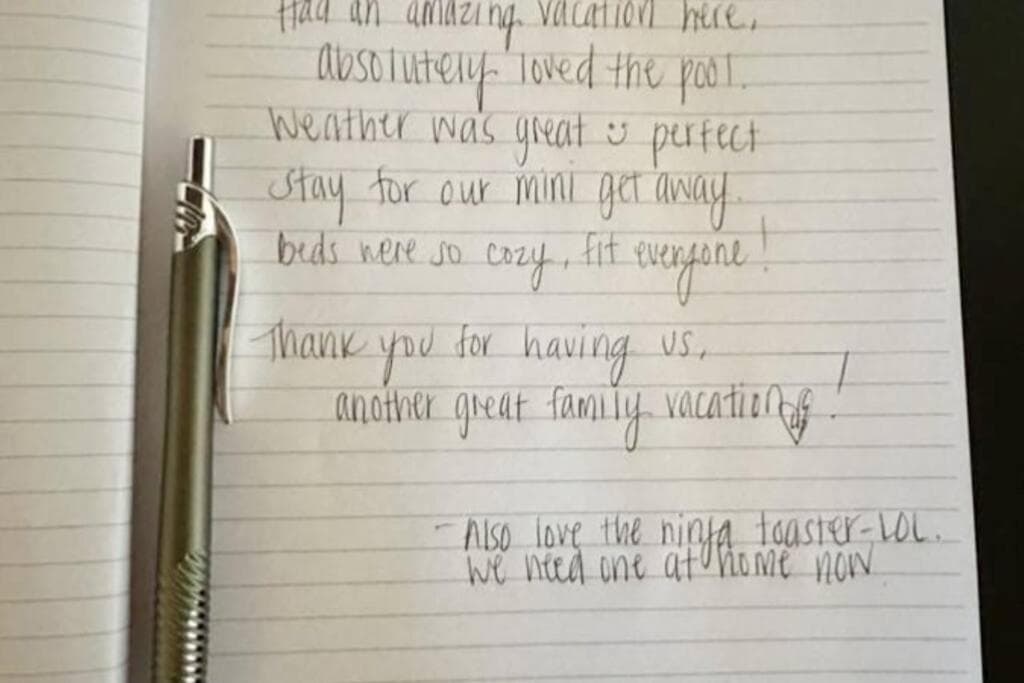 Had an amazing vacation here,
absolutely loved the pool.
Weather was great :) perfect
stay for our mini get away.
beds were so cozy, fit everyone!
Thank you for having us,
another great family vacation!
- Also love the ninja toaster-LOL.
we need one at home now